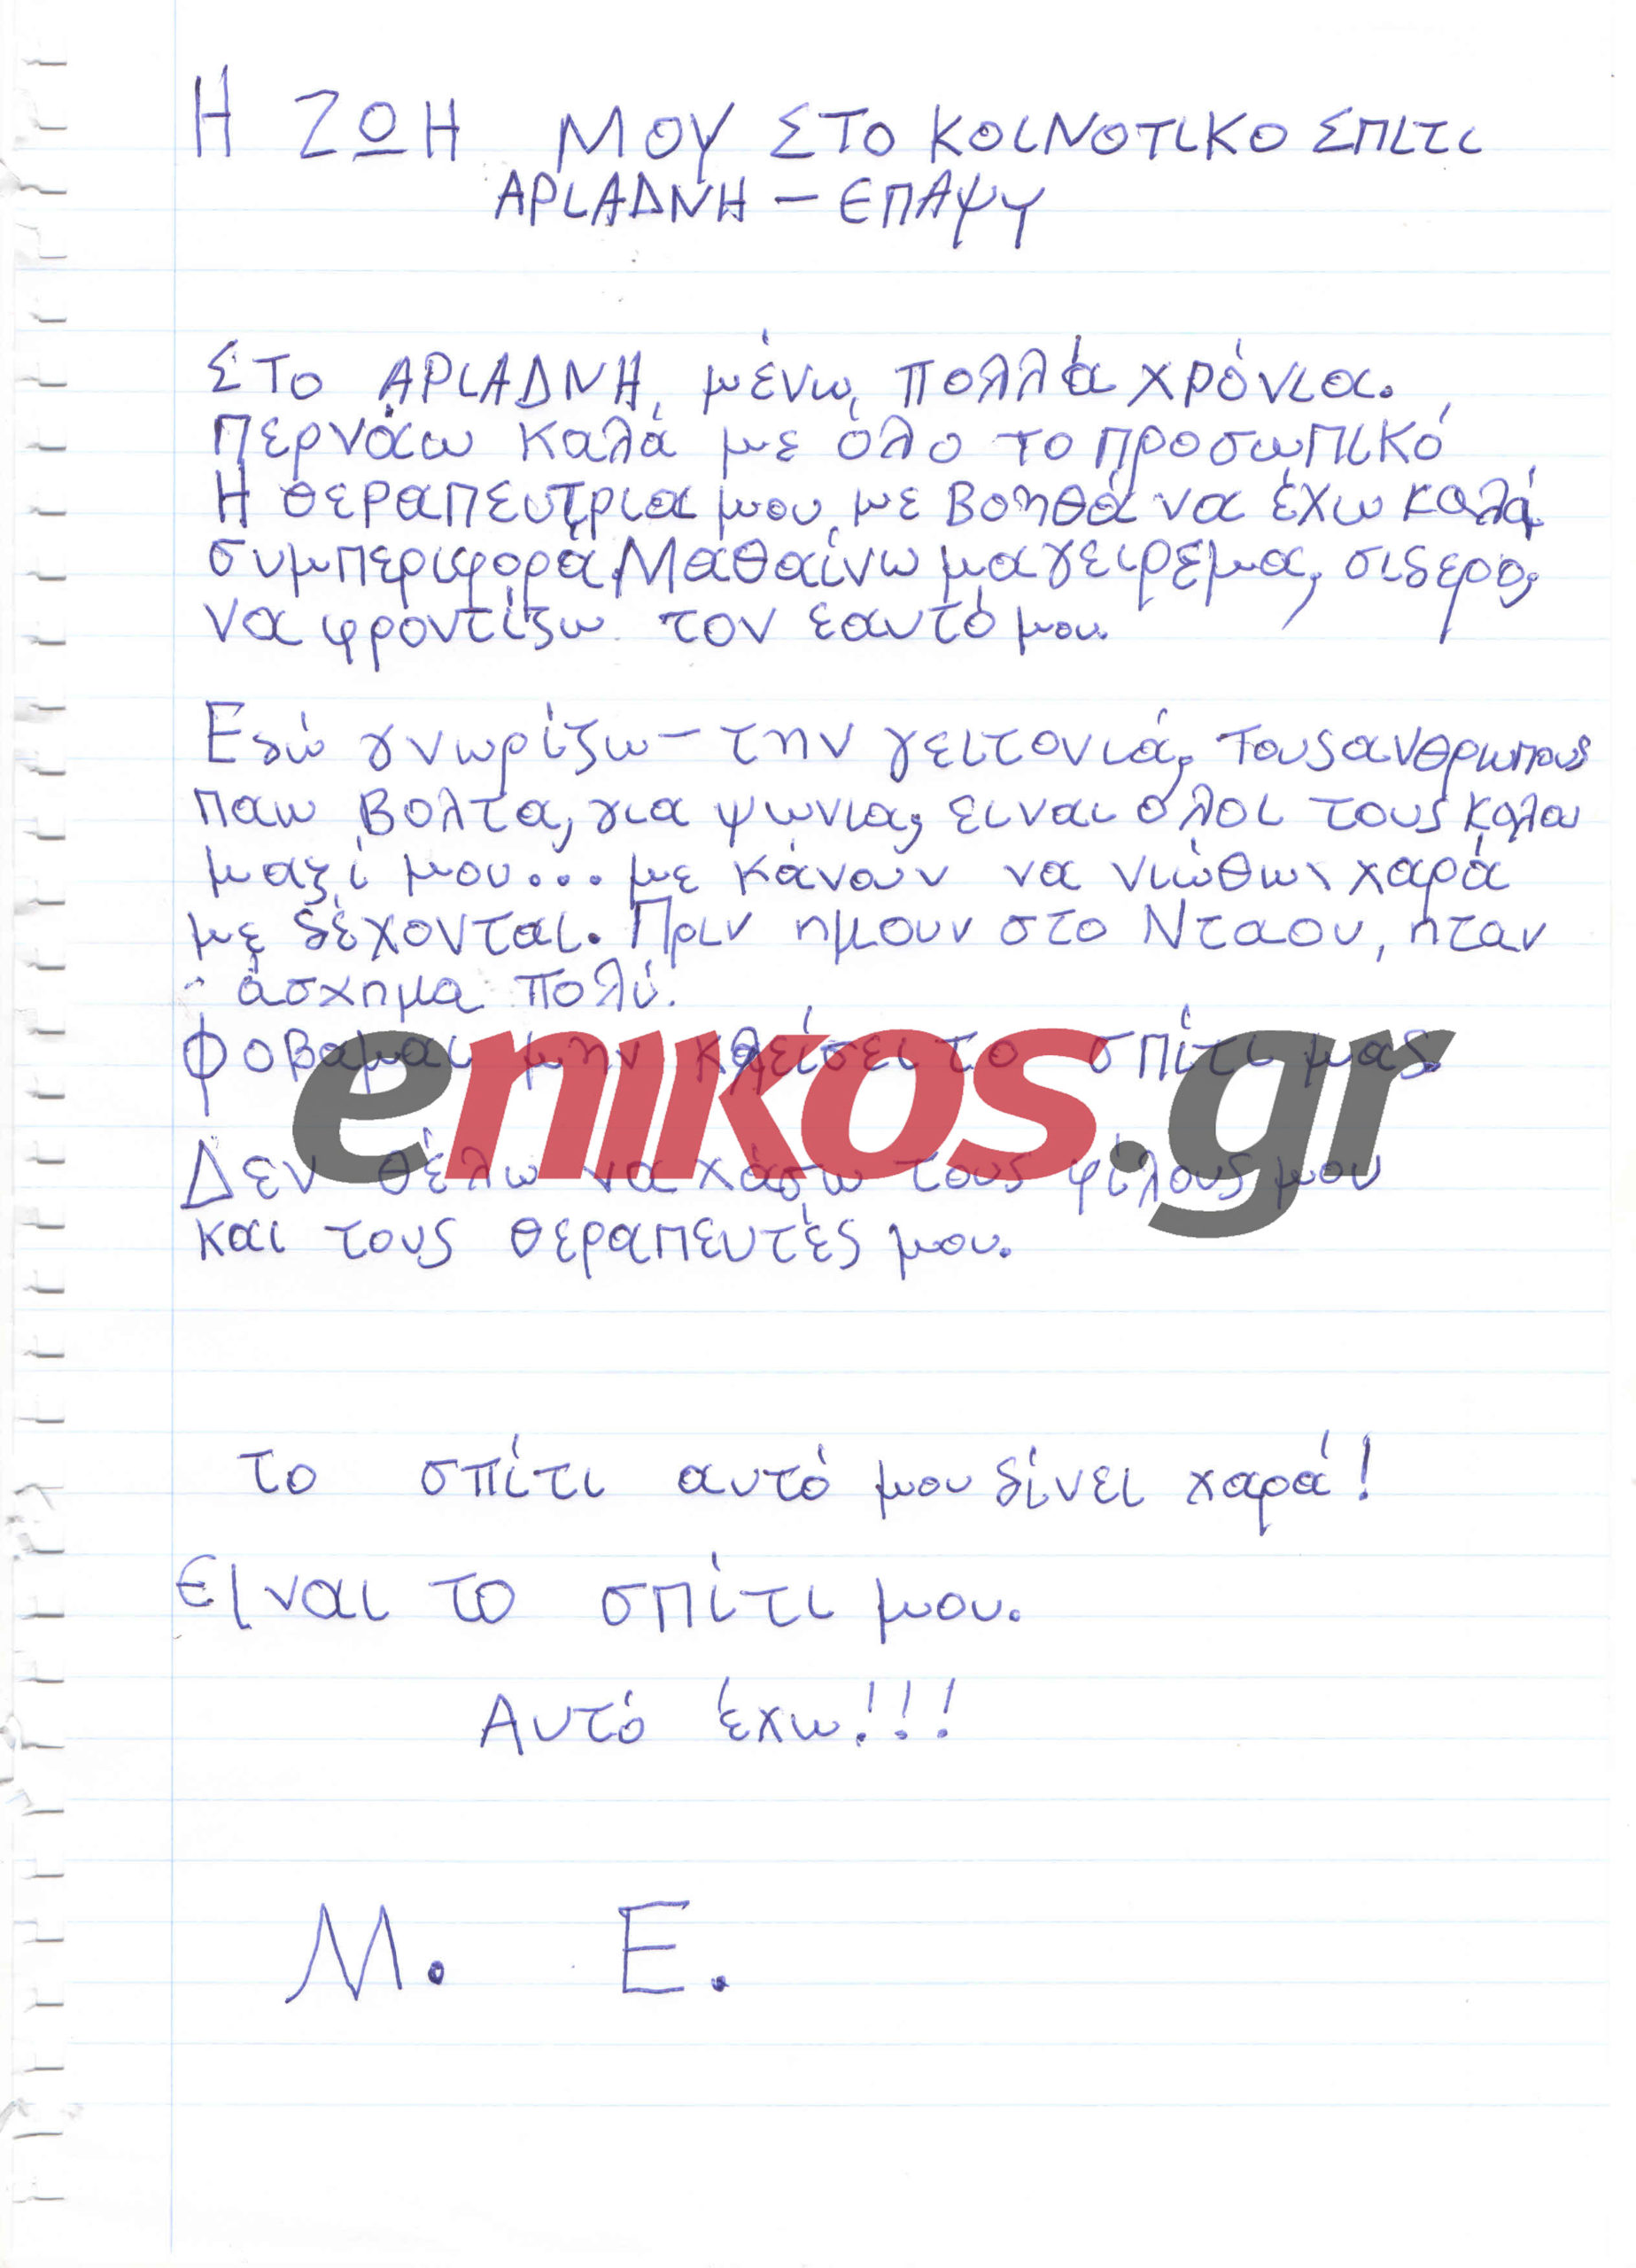 Η ΖΩΗ ΜΟΥ ΣΤΟ ΚΟΙΝΟΤΙΚΟ ΣΠΙΤΙ
ΑΡΙΑΔΝΗ - ΕΠΑΨΥ
ΣΤΟ ΑΡΙΑΔΝΗ, μένω, πολλά χρόνια.
Περνάω καλά με όλο το προσωπικό
Η θεραπευτρια μου, με βοηθά να έχω καλή
συμπεριφορά. Μαθαίνω μαγειρεμα, σιδερο,
να φροντίζω τον εαυτό μου.
Εδώ γνωρίζω - την γειτονιά, τους ανθρωπους
παω βολτα, για ψωνια, ειναι ολοι τους καλοι
μαζί μου... με κάνουν να νιώθω χαρά
με δέχονται. Πριν ημουν στο Νταου, ηταν
άσχημα πολύ.
Φοβαμαι μην κλείσει το σπίτι μας.
enikos.gr
Δεν θέλω να χάσω τους φίλους μου
και τους θεραπευτές μου.
το σπίτι αυτό μου δίνει χαρά!
Είναι το σπίτι μου.
Αυτό έχω!!!
Μ. Ε.